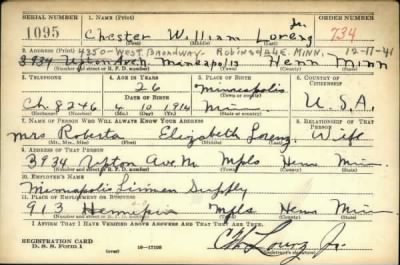 SERIAL NUMBER 1. NAME (Print) ORDER NUMBER
Jr.
1095 Chester William Lorenz 734
(First) (Middle) (Last)
2. ADDRESS (Print) 4350-WEST BROADWAY- ROBINSDALE MINN. 12-17-41
3934 Upton Ave N. Minneapolis Henn Minn
(Number and street or R. F. D. number) (Town) (County) (State)
3. TELEPHONE 4. AGE IN YEARS 5. PLACE OF BIRTH 6. COUNTRY OF CITIZENSHIP
26 Minneapolis
DATE OF BIRTH (Town or county)
Ch. 8246 4 10 1914 Min U.S.A.
(Exchange) (Number) (Mo.) (Day) (Yr.) (State or country)
7. NAME OF PERSON WHO WILL ALWAYS KNOW YOUR ADDRESS 8. RELATIONSHIP OF THAT PERSON
Mrs Roberta Elizabeth Lorenz Wife
(Mr., Mrs., Miss) (First) (Middle) (Last)
9. ADDRESS OF THAT PERSON
3934 Upton Ave N. Mpls Henn Min
(Number and street or R. F. D. number) (Town) (County) (State)
10. EMPLOYER'S NAME
Minneapolis Linnen Supply
11. PLACE OF EMPLOYMENT OR BUSINESS
913 Hennepin Mpls Henn Min
(Number and street or R. F. D. number) (Town) (County) (State)
I AFFIRM THAT I HAVE VERIFIED ABOVE ANSWERS AND THAT THEY ARE TRUE.
REGISTRATION CARD
D. S. S. Form 1 (over) 16-17105 (Registrant's signature)
Lorenz Jr.